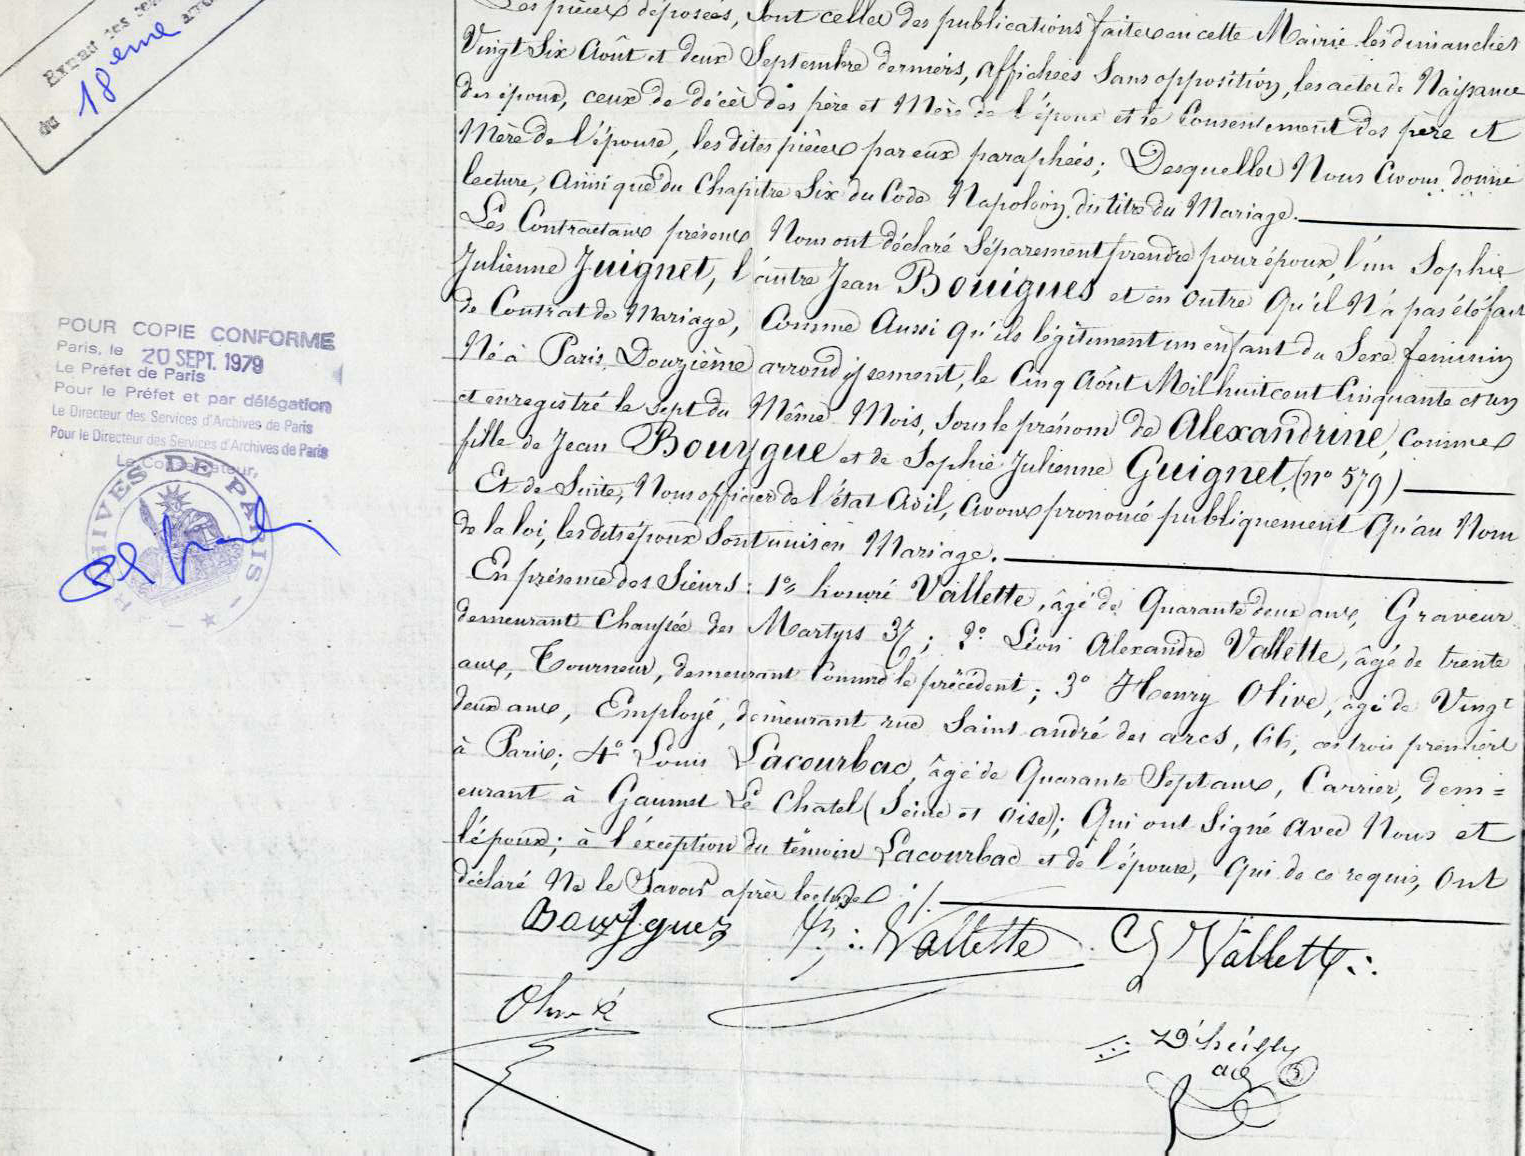 Extrait des
du 18ème arr
POUR COPIE CONFORME
Paris, le 20 SEPT. 1979
Le Préfet de Paris
Pour le Préfet et par délégation
Le Directeur des Services d'Archives de Paris
Pour le Directeur des Services d'Archives de Paris
Le Conservateur,
ARCHIVES DE PARIS
Les pièces déposées, sont celles des publications faites en cette Mairie les dimanches
Vingt Six Août et deux Septembre derniers, affichées Sans opposition, les actes de Naissance
des époux, ceux de décès des père et Mère de l'époux et le Consentement des père et
Mère de l'épouse, les dites pièces par eux paraphées; Desquelles Nous avons donné
lecture, Ainsi que du Chapitre Six du Code Napoléon, du titre du Mariage.
Les Contractans présens Nous ont déclaré Séparement prendre pour époux, l'un Sophie
Julienne Juignet, l'autre Jean Bouigues et en outre Qu'il N'a pas été fait
de Contrat de Mariage, Comme Aussi qu'ils légitiment un enfant du Sexe feminin
Né à Paris, Douzième arrondissement, le Cinq Août Mil huit cent Cinquante et un
et enregistré le sept du Même Mois, sous le prénom de Alexandrine, comme
fille de Jean Bouygue et de Sophie Julienne Guignet, (no 579)
Et de Suite, Nous officier de l'état Civil, avons prononcé publiquement Qu'au Nom
de la loi, les dits époux Sont unis en Mariage.
En présence des Sieurs: 1o honoré Vallette, âgé de Quarante deux ans, Graveur
demeurant Chaussée des Martyrs 37; 2o Léon Alexandre Vallette, âgé de trente
ans, Tourneur, demeurant Comme le précédent; 3o Henry Olive, âgé de Vingt
deux ans, Employé, demeurant rue Saint andré des arcs, 66, ces trois premiers
à Paris; 4o Louis Lacourbac, âgé de Quarante Sept ans, Carrier, dem=
eurant à Le Chatel (Seine et Oise); Qui ont Signé avec Nous et
l'époux; à l'éxception du témoin Lacourbac et de l'épouse, Qui de ce requis, ont
déclaré Ne le Savoir après lecture ./.
Bouygues Vallette Vallette